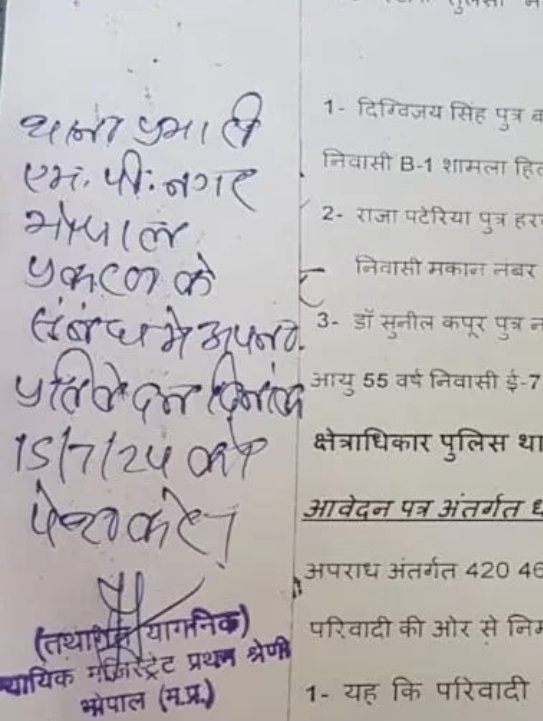 थाना प्रभारी
एम. पी. नगर
भोपाल
प्रकरण के
संबंध मे अपना
प्रतिवेदन दिनांक
15/7/24 को
पेश करे।
न्यायिक मजिस्ट्रेट प्रथम श्रेणी
भोपाल (म.प्र.)
1- दिग्विजय सिंह पुत्र
निवासी B-1 शामला
2- राजा पटेरिया पुत्र
निवासी मकान नंबर
3- डॉ सुनील कपूर पुत्र
आयु 55 वर्ष निवासी ई-7
क्षेत्राधिकार पुलिस
आवेदन पत्र अंतर्गत
अपराध अंतर्गत 420
परिवादी की ओर से
1- यह कि परिवादी